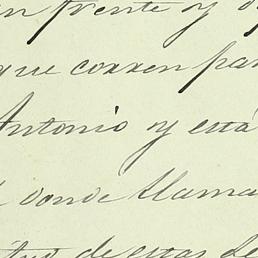 en frente y d
que corren par
Antonio y está
donde llama
titud de estas de